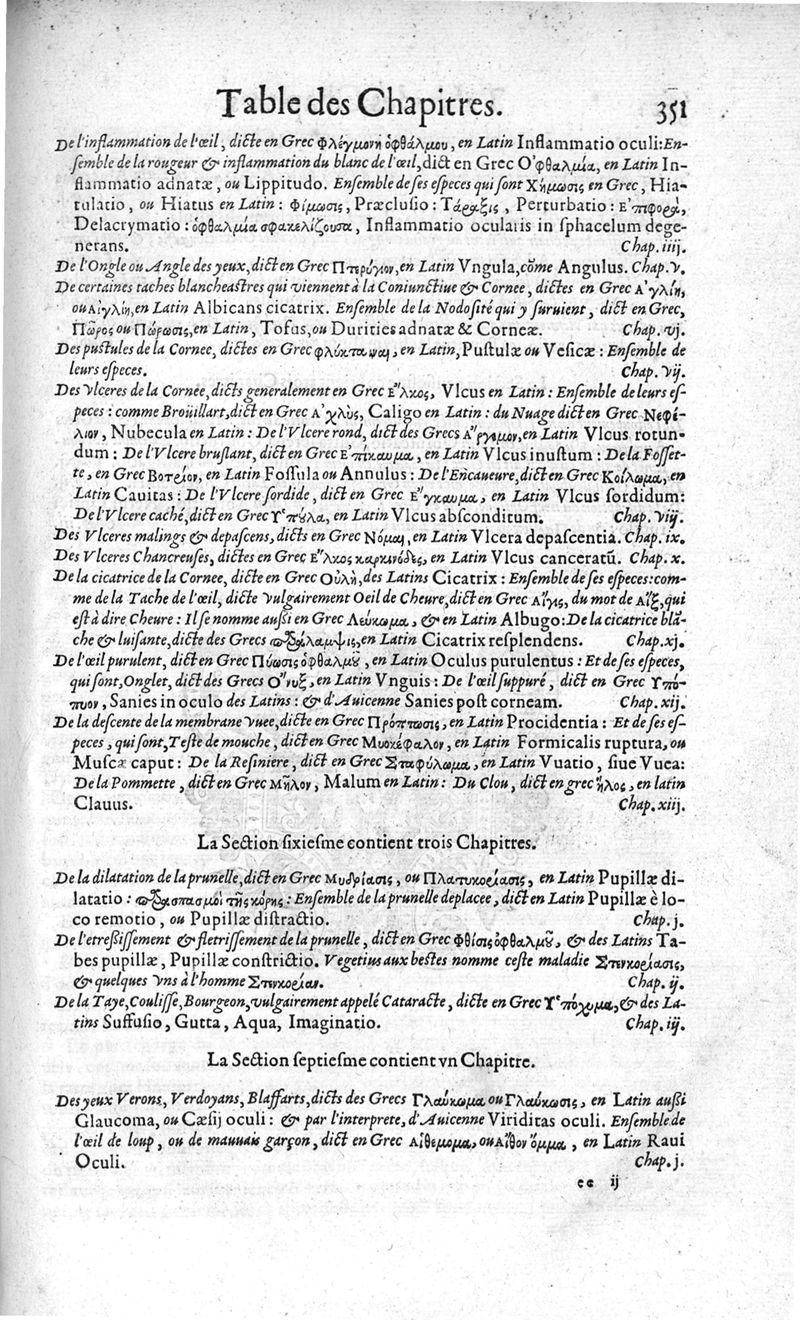 Table des Chapitres. 351
De l'inflammation de l'œil, dicte en Grec Φλέγμονὴ ὀφθάλμου, en Latin Inflammatio oculi: En-
ſemble de la rougeur & inflammation du blanc de l'œil, dict en Grec Ὀφθαλμία, en Latin In-
flammatio adnatæ, ou Lippitudo. Enſemble de ſes eſpeces qui ſont Χήμωσις en Grec, Hia-
tulatio, ou Hiatus en Latin: Φίμωσις, Præcluſio: Τάραξις, Perturbatio: Ἐπιφορά,
Delacrymatio: ὀφθαλμία σφακελίζουσα, Inflammatio ocularis in ſphacelum dege-
nerans. Chap. iiij.
De l'Ongle ou Angle des yeux, dict en Grec Πτερύγιον, en Latin Vngula, cõme Angulus. Chap. v.
De certaines taches blancheaſtres qui viennent à la Coniunctiue & Cornee, dictes en Grec Ἀγλίη,
ou Αἰγλίη, en Latin Albicans cicatrix. Enſemble de la Nodoſité qui y ſuruient, dict en Grec,
Πῶρος ou Πώρωσις, en Latin, Tofus, ou Durities adnatæ & Corneæ. Chap. vj.
Des puſtules de la Cornee, dictes en Grec φλύκταιναι, en Latin, Puſtulæ ou Veſicæ: Enſemble de
leurs eſpeces. Chap. vij.
Des vlceres de la Cornée, dicts generalement en Grec Ἕλκος, Vlcus en Latin: Enſemble de leurs eſ-
peces: comme Broüillart, dict en Grec Ἀχλὺς, Caligo en Latin: du Nuage dict en Grec Νεφέ-
λιον, Nubecula en Latin: De l'Vlcere rond, dict des Grecs Ἄργεμον, en Latin Vlcus rotun-
dum: De l'Vlcere bruſlant, dict en Grec Ἐπίκαυμα, en Latin Vlcus inuſtum: De la Foſſet-
te, en Grec Βοτρίον, en Latin Foſſula ou Annulus: De l'Encaueure, dict en Grec Κοίλωμα, en
Latin Cauitas: De l'Vlcere ſordide, dict en Grec Ἔγκαυμα, en Latin Vlcus ſordidum:
De l'Vlcere caché, dict en Grec Ὑπούλα, en Latin Vlcus abſconditum. Chap. viij.
Des Vlceres malings & depaſcens, dicts en Grec Νόμαι, en Latin Vlcera depaſcentia. Chap. ix.
Des Vlceres Chancreuſes, dictes en Grec Ἕλκος καρκινόδες, en Latin Vlcus canceratũ. Chap. x.
De la cicatrice de la Cornee, dicte en Grec Οὐλὴ, des Latins Cicatrix: Enſemble de ſes eſpeces: com-
me de la Tache de l'œil, dicte vulgairement Oeil de Cheure, dict en Grec Αἴγις, du mot de Αἴξ, qui
eſt à dire Cheure: Il ſe nomme auſsi en Grec Λεύκωμα, & en Latin Albugo: De la cicatrice blã-
che & luiſante, dicte des Grecs παράλαμψις, en Latin Cicatrix reſplendens. Chap. xj.
De l'œil purulent, dict en Grec Πύωσις ὀφθαλμοῦ, en Latin Oculus purulentus: Et de ſes eſpeces,
qui ſont, Onglet, dict des Grecs Ὄνυξ, en Latin Vnguis: De l'œil ſuppuré, dict en Grec Ὑπό-
πυον, Sanies in oculo des Latins: & d'Auicenne Sanies poſt corneam. Chap. xij.
De la deſcente de la membrane vuee, dicte en Grec Πρόπτωσις, en Latin Procidentia: Et de ſes eſ-
peces, qui ſont, Teſte de mouche, dict en Grec Μυοκέφαλον, en Latin Formicalis ruptura, ou
Muſcæ caput: De la Reſiniere, dict en Grec Σταφύλωμα, en Latin Vuatio, ſiue Vuea:
De la Pommette, dict en Grec Μῆλον, Malum en Latin: Du Clou, dict en grec ἧλος, en latin
Clauus. Chap. xiij.
La Section ſixieſme contient trois Chapitres.
De la dilatation de la prunelle, dict en Grec Μυδρίασις, ou Πλατυκορίασις, en Latin Pupillæ di-
latatio: παρασπασμοὶ τῆς κόρης: Enſemble de la prunelle deplacee, dict en Latin Pupillæ è lo-
co remotio, ou Pupillæ diſtractio. Chap. j.
De l'etreſsiſſement & fletriſſement de la prunelle, dict en Grec Φθίσις ὀφθαλμοῦ, & des Latins Ta-
bes pupillæ, Pupillæ conſtrictio. Vegetius aux beſtes nomme ceſte maladie Στενκορίασις,
& quelques vns à l'homme Στενκορίαν. Chap. ij.
De la Taye, Couliſſe, Bourgeon, vulgairement appelé Cataracte, dicte en Grec Ὑπόχυμα, & des La-
tins Suffuſio, Gutta, Aqua, Imaginatio. Chap. iij.
La Section ſeptieſme contient vn Chapitre.
Des yeux Verons, Verdoyans, Blaffarts, dicts des Grecs Γλαύκωμα ou Γλαύκωσις, en Latin auſsi
Glaucoma, ou Cæſij oculi: & par l'interprete, d'Auicenne Viriditas oculi. Enſemble de
l'œil de loup, ou de mauuais garçon, dict en Grec Αἴθεμομα, ou Αἴθον ὄμμα, en Latin Raui
Oculi. Chap. j.
ee ij